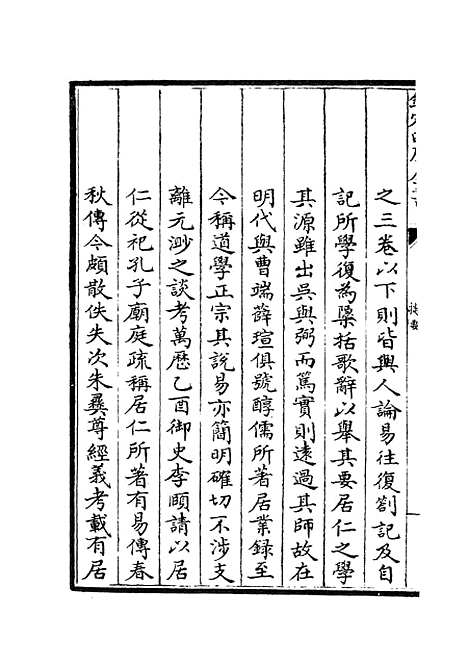 之三卷以下則皆與人論易往復劄記及自
記所學復為檃括歌辭以舉其要居仁之學
其源雖出吳與弼而篤實則遠過其師故在
明代與曹端薛瑄俱號醇儒所著居業録至
今稱道學正宗其說易亦簡明確切不涉支
離元渺之談考萬歷乙酉御史李頤請以居
仁從祀孔子廟庭疏稱居仁所著有易傳春
秋傳今頗散佚失次朱彝尊經義考載有居